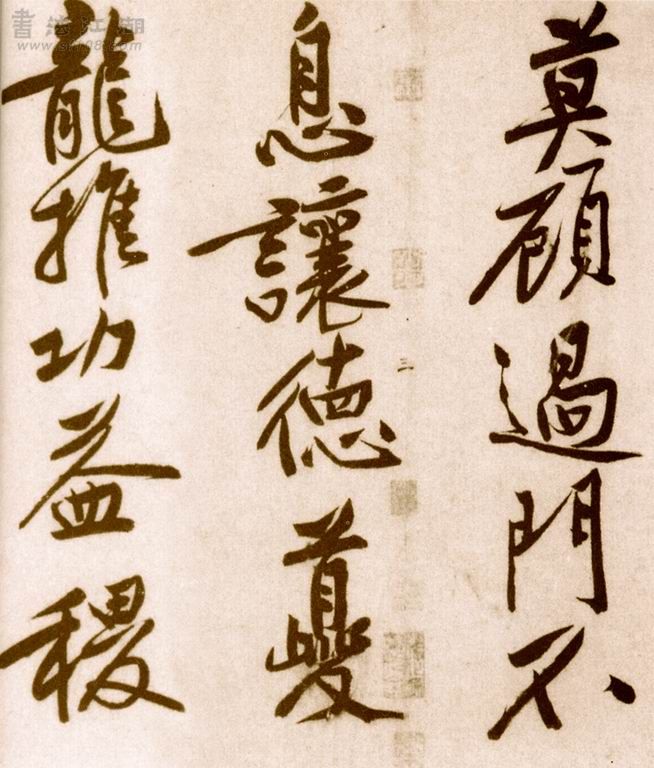 莫顧過門不
息讓德夔
龍推功益稷
三
書法江湖
www.sf108.com